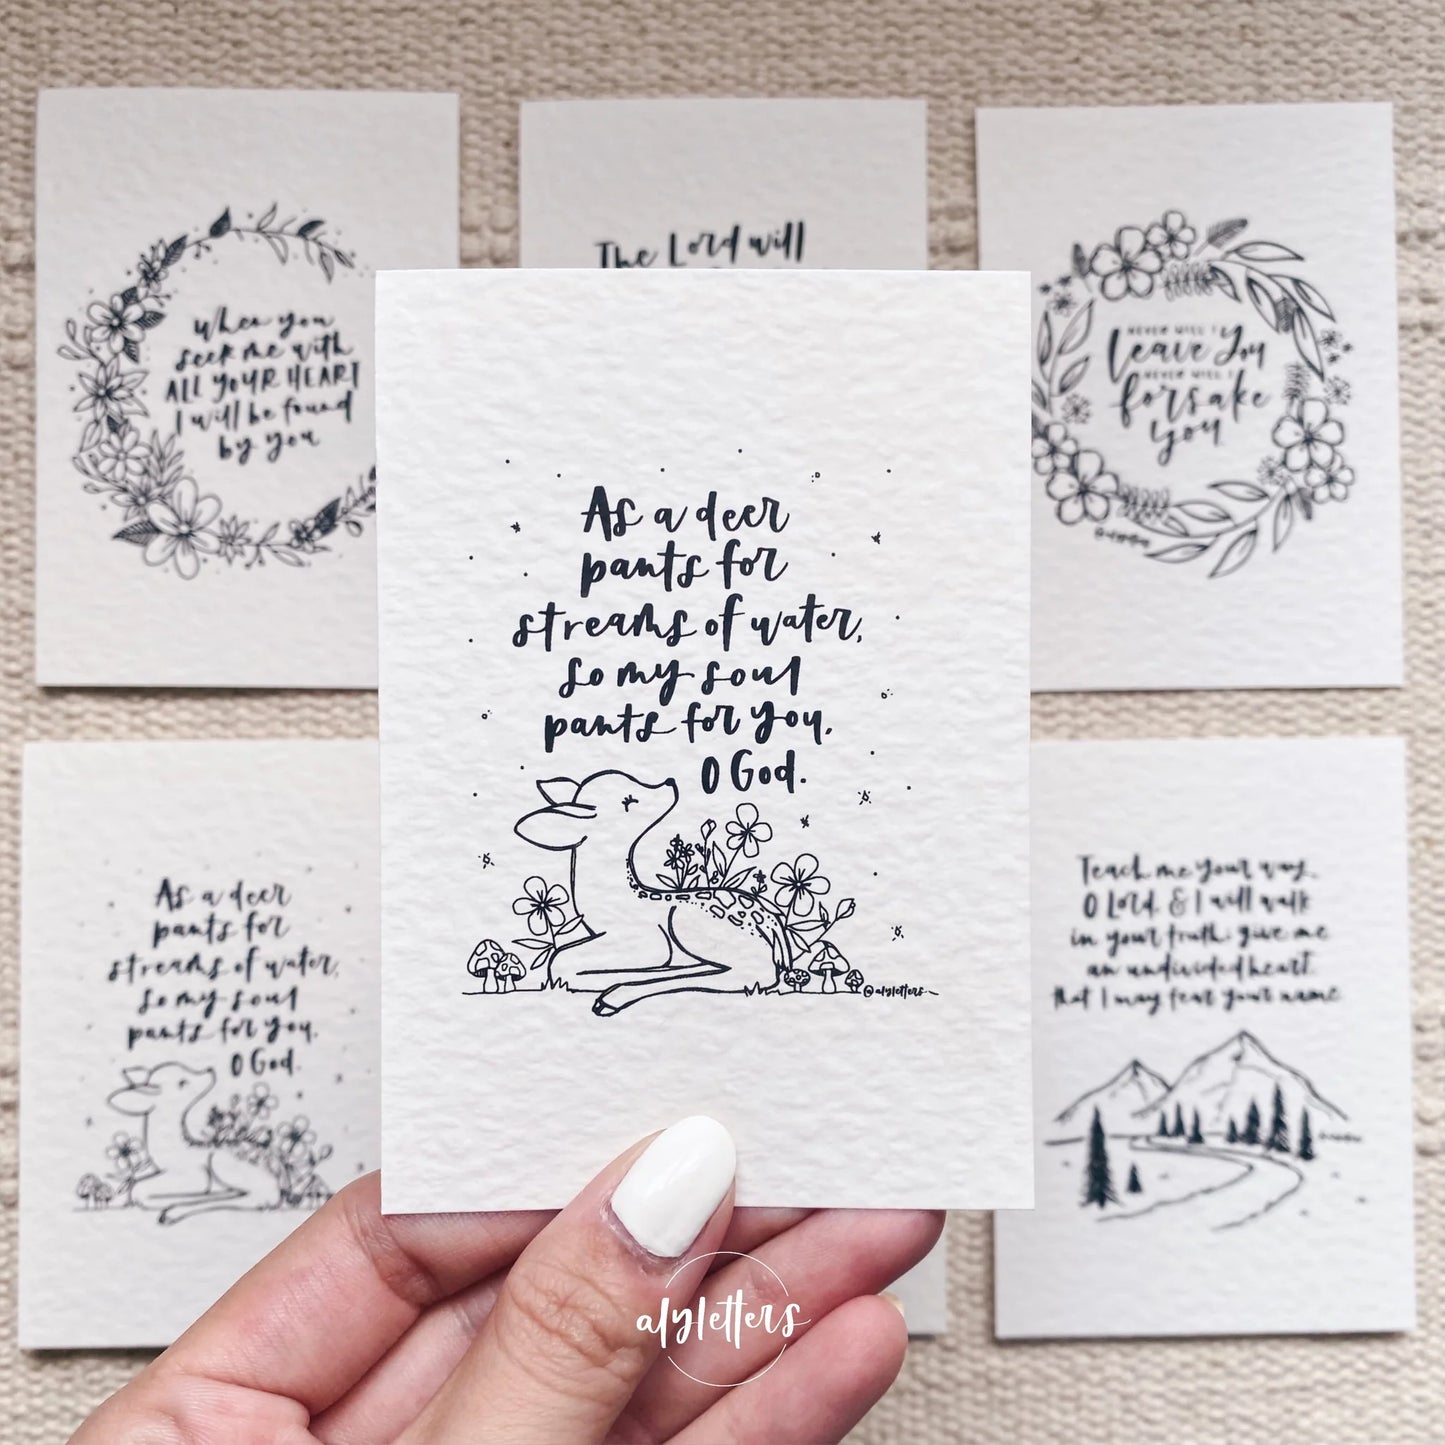 When you
seek me with
ALL YOUR HEART
I will be found
by you
The Lord will
NEVER WILL I
leave you
NEVER WILL I
forsake
you
@alyletters
As a deer
pants for
streams of water,
so my soul
pants for you,
O God.
@alyletters
As a deer
pants for
streams of water,
so my soul
pants for you,
O God.
Teach me your way,
O Lord, & I will walk
in your truth; give me
an undivided heart,
that I may fear your name
alyletters